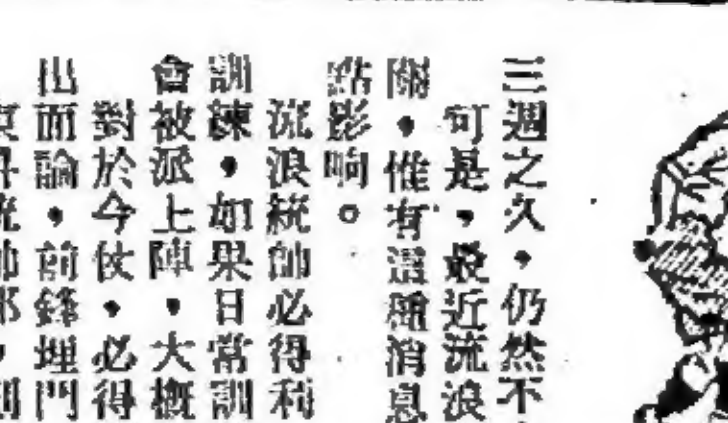 三週之久，仍然不
可是，最近流浪
關，惟有這種消息
點影响。
流浪統帥必得利
訓練，如果日常訓
會被派上陣，大概
對於今仗，必得
出而論，前鋒埋門